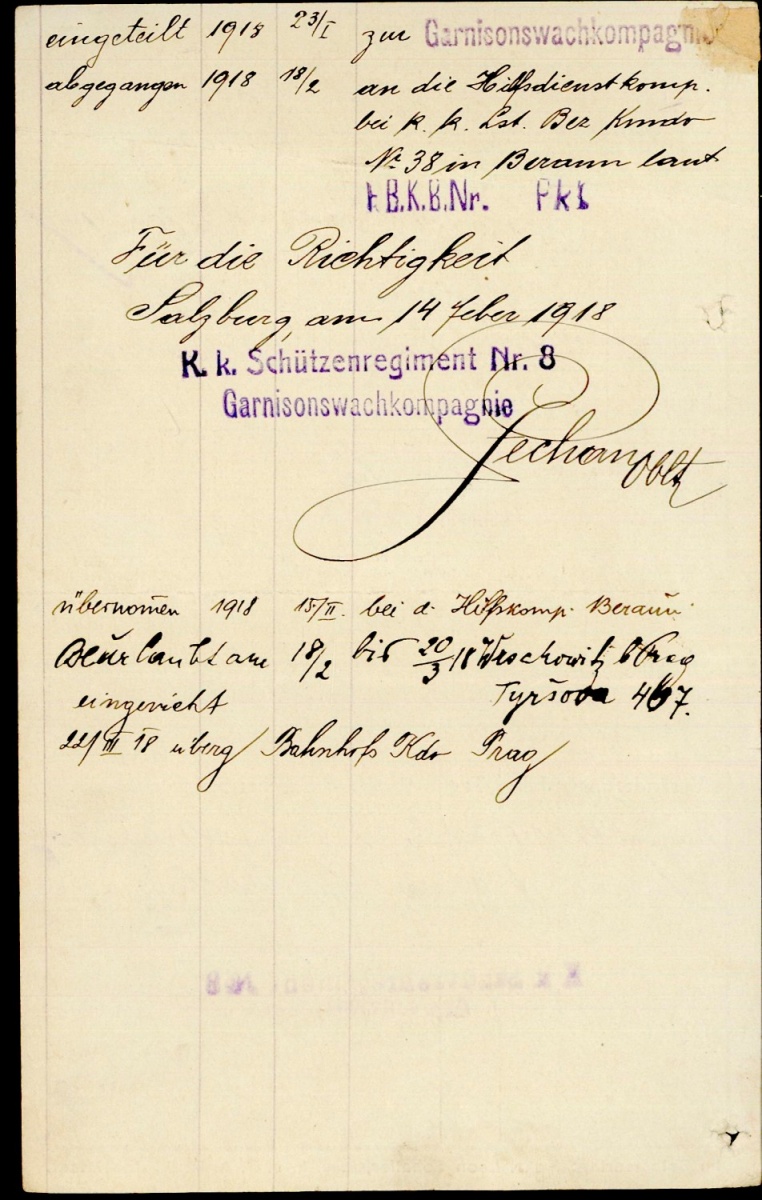 eingeteilt 1918 23/I zur Garnisonswachkompagnie
abgegangen 1918 18/2 an die Hilfsdienstkomp.
bei k. k. Lst. Bez Kmdo
Nr 38 in Beraun laut
B.K.B.Nr. Pkt
Für die Richtigkeit
Salzburg, am 14 Feber 1918
K. k. Schützenregiment Nr. 8
Garnisonswachkompagnie
Pechan Oblt
übernom̄en 1918 15/II. bei d. Hilfskomp. Beraun
Beurlaubt am 18/2 bis 20/3 18 Wrschowitz b Prag
Tyršova 467.
eingerückt
22/III 18 überg/ Bahnhofs Kdo Prag/